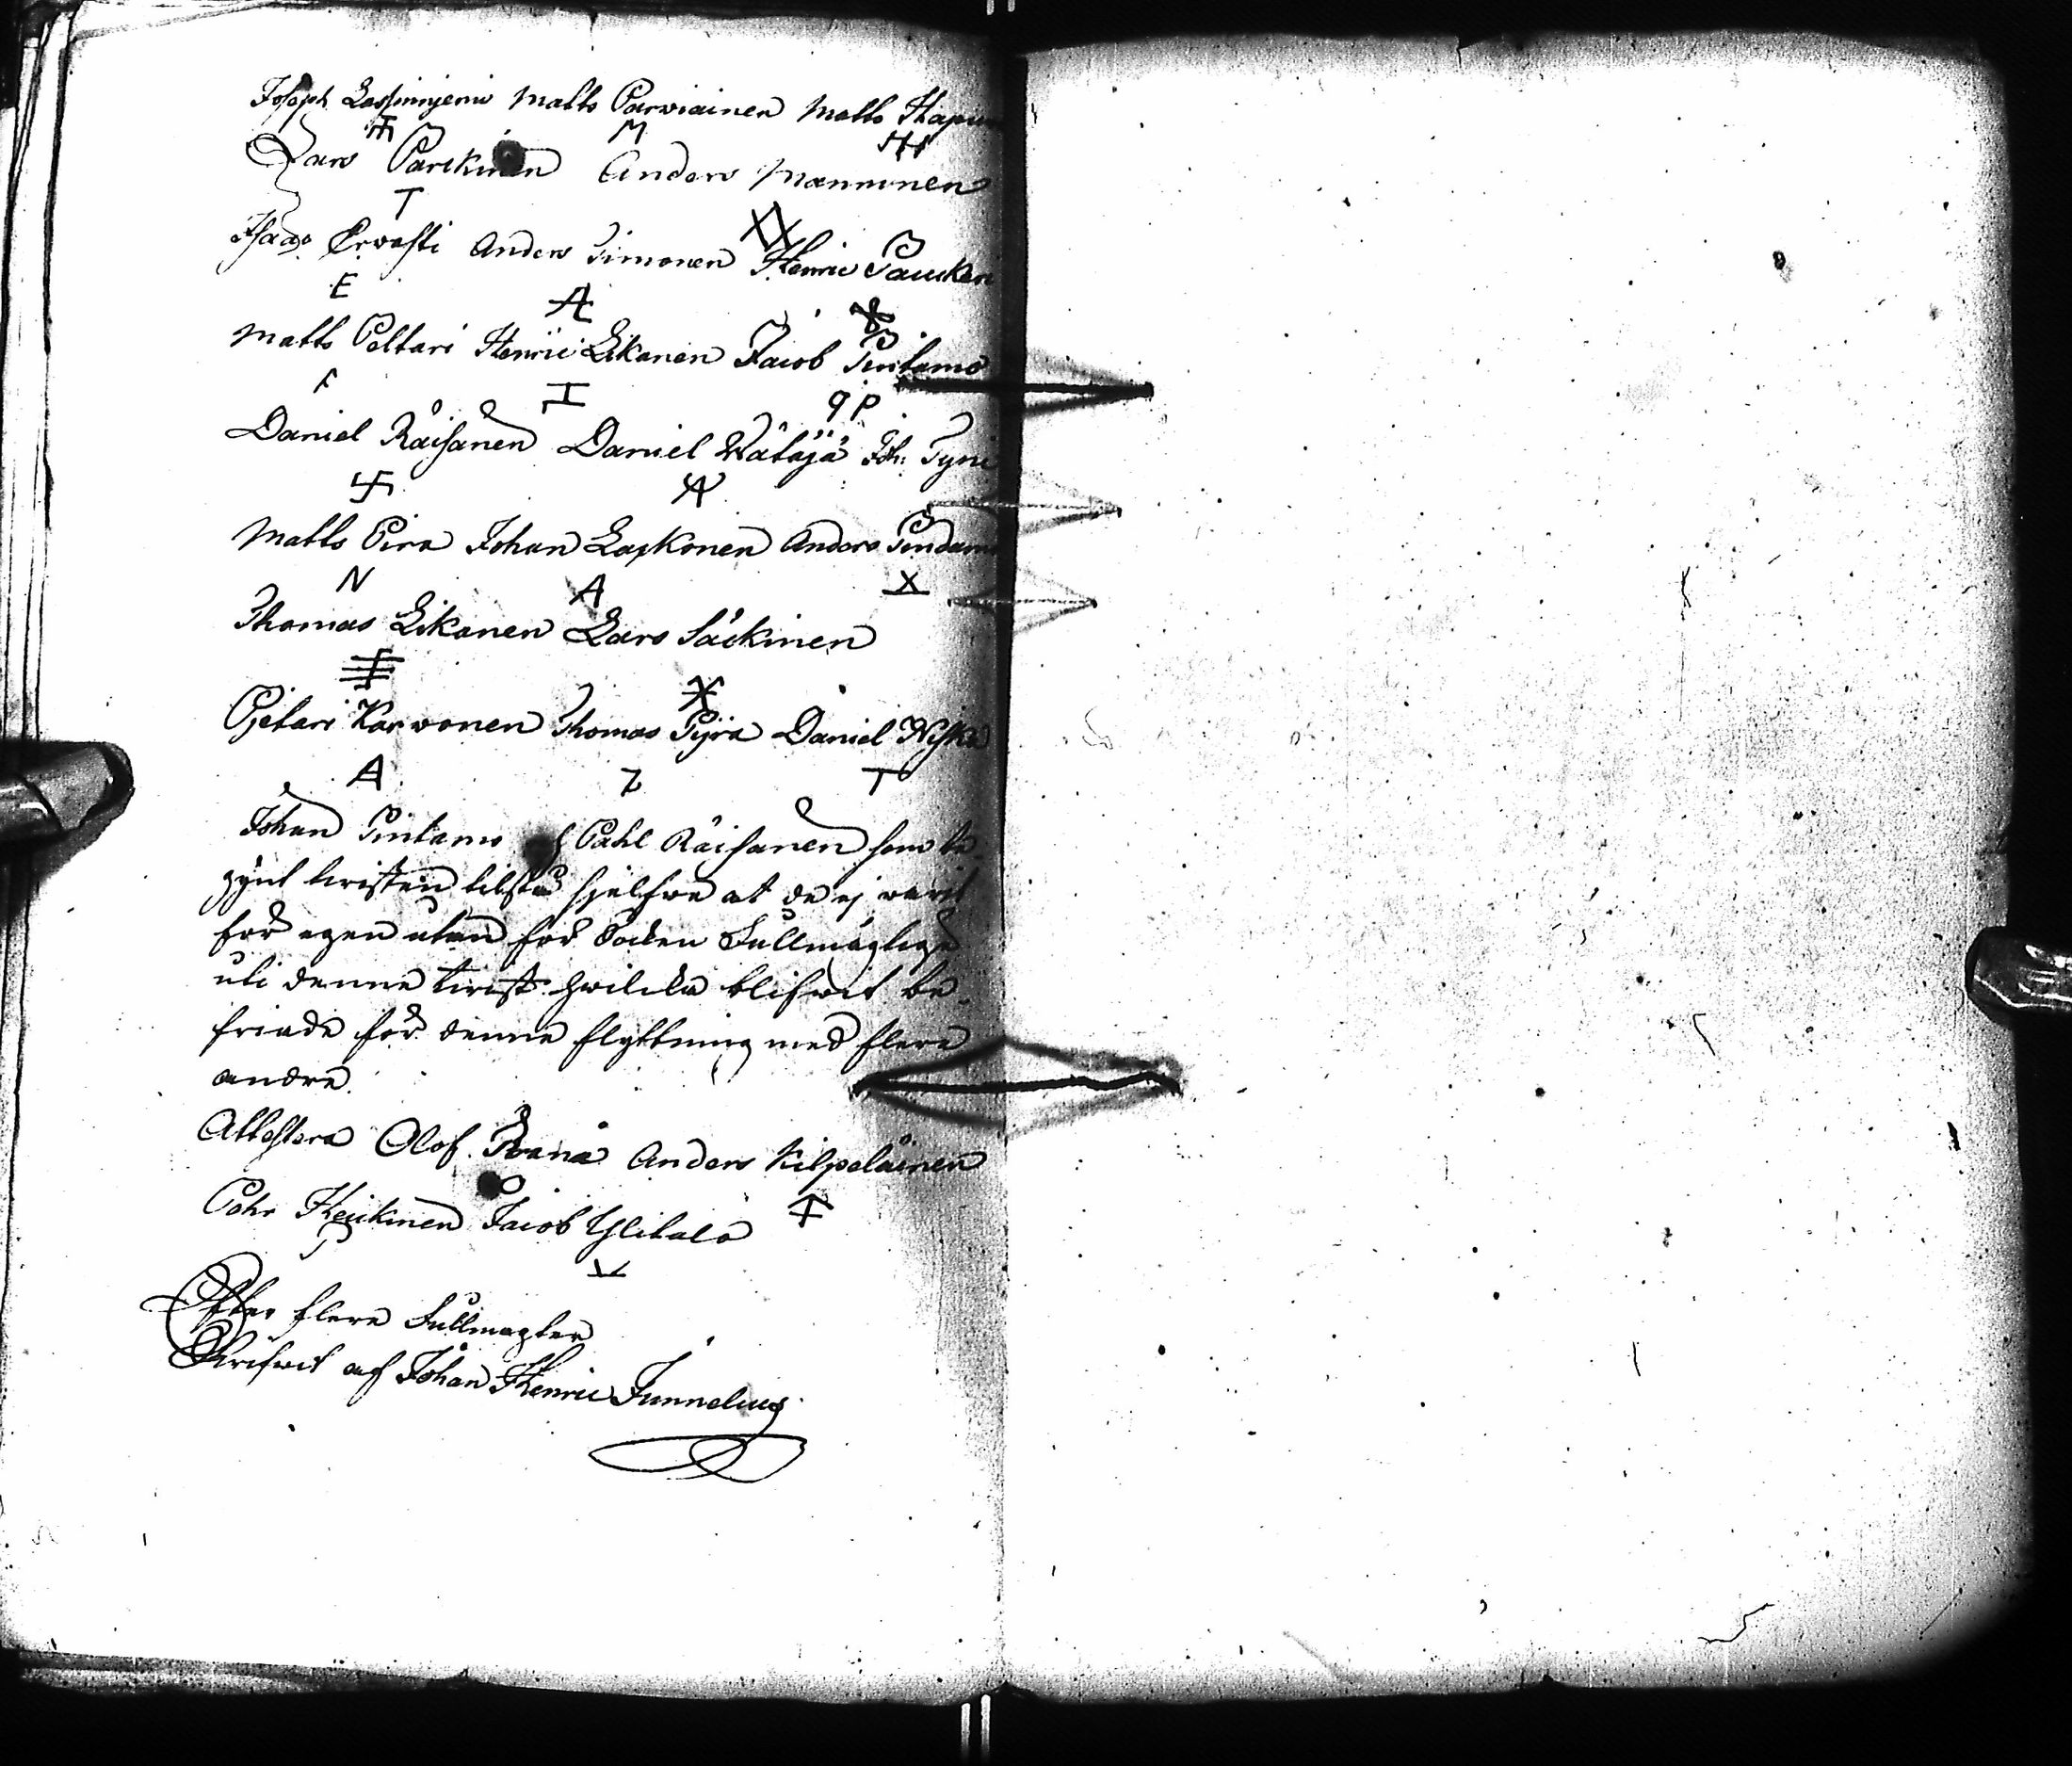 Joseph Lassinniemi Matts Parwiainen Matts
M
Lars Parckinen Anders Manninen
T
Isaac Erwasti Anders Timonen Henric Paucken
E A
Matts Peltari Henric Likanen Jacob Pintamo
I
Daniel Räisänen Daniel Wätäjä Joh: Tyni
Matts Pira Johan Laskonen Anders
N A X
Thomas Likanen Lars Säckinen
Petari Karwonen Thomas Pijra Daniel Niska
A T
Johan Pintamo Påhl Räisänen som be-
gynt twisten tilstå sjelfwe at de ej warit
för egen utan för Socken Fullmägtige
uti denne twist hwilcka blifwit be-
friade för denne flyttning med flera
andre
Attestera Olof Anders Kilpeläinen
Pehr Heickinen Jacob Ylitalo
Efter flere Fullmagter
Skrifwit af Johan Henric Junnelius